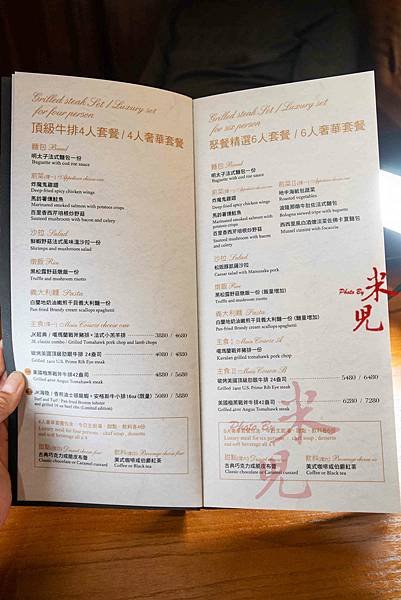 Grilled steak Set / Luxury set
for four person
頂級牛排4人套餐 / 4人奢華套餐
麵包 Bread
明太子法式麵包一份
Baguette with cod roe sauce
前菜(擇一) Appetizer choose one
炸魔鬼雞翅
Deep-fried spicy chicken wings
馬鈴薯燻鮭魚
Marinated smoked salmon with potatoes crops
百里香西芹培根炒野菇
Sauteed mushroom with bacon and celery
沙拉 Salad
鮮蝦野菇法式風味溫沙拉一份
Shrimps and mushroom salad
燉飯 Rice
黑松露野菇燉飯一份
Truffle and mushroom risotto
義大利麵 Pasta
白蘭地奶油嫩煎干貝義大利麵一份
Pan-fried Brandy cream scallops spaghetti
主食(擇一) Main Course choose one
3880 / 4680
歐烤美國頂級肋眼牛排 24盎司 4080 / 4880
Grilled 24oz U.S. Prime Rib Eye steak
美國極黑戰斧牛排42盎司 4880 / 5680
Grilled 42oz Angus Tomahawk steak
5080 / 5880
Luxury meal for four persons
古典巧克力或脆皮布蕾
Classic chocolate or Caramel custard
美式咖啡或伯爵紅茶
Coffee or Black tea
Grilled steak Set / Luxury set
for six person
聚餐精選6人套餐 / 6人奢華套餐
麵包 Bread
明太子法式麵包一份
Baguette with cod roe sauce
炸魔鬼雞翅
Deep-fried spicy chicken wings
馬鈴薯燻鮭魚
Marinated smoked salmon with potatoes crops
百里香西芹培根炒野菇
Sauteed mushroom with bacon and celery
地中海鮮蔬蔬菜
Roasted vegetables
Bologna stewed tripe with baguette
Mussel custom with focaccia
沙拉 Salad
松阪豚凱薩沙拉
Caesar salad with Matsusaka pork
燉飯 Rice
黑松露野菇燉飯一份 (份量增加)
Truffle and mushroom risotto
義大利麵 Pasta
白蘭地奶油嫩煎干貝義大利麵一份 (份量增加)
Pan-fried Brandy cream scallops spaghetti
主食 I Main Course A
嘎瑪蘭戰斧豬排一份
Kavalan grilled tomahawk pork chop
主食 II Main Course B
歐烤美國頂級肋眼牛排 24盎司 5480 / 6480
Grilled 24oz U.S. Prime Rib Eye steak
美國極黑戰斧牛排42盎司 6280 / 7280
Grilled 42oz Angus Tomahawk steak
Luxury meal for six persons
古典巧克力或脆皮布蕾
Classic chocolate or Caramel custard
美式咖啡或伯爵紅茶
Coffee or Black tea
Photo By 米兒
Photo By 米兒